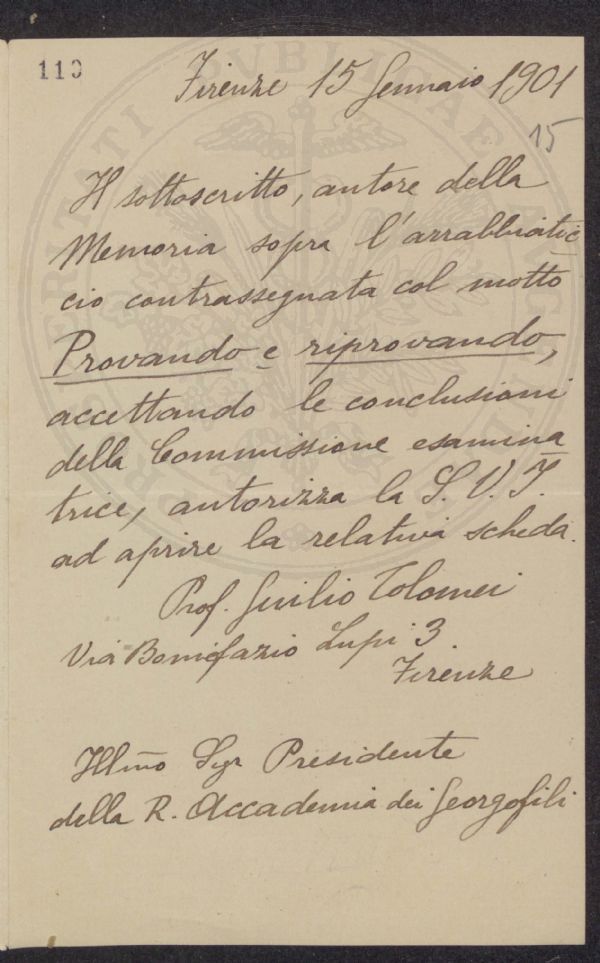 110
Firenze 15 Gennaio 1901
15
Il sottoscritto, autore della
Memoria sopra l'arrabbiatic
cio contrassegnata col motto
Provando e riprovando,
accettando le conclusioni
della Commissione esamina
trice, autorizza la S. V. I.
ad aprire la relativa scheda.
Prof. Giulio Tolomei
Via Bonifazio Lupi 3
Firenze
Illmo Sigr Presidente
della R. Accademia dei Georgofili